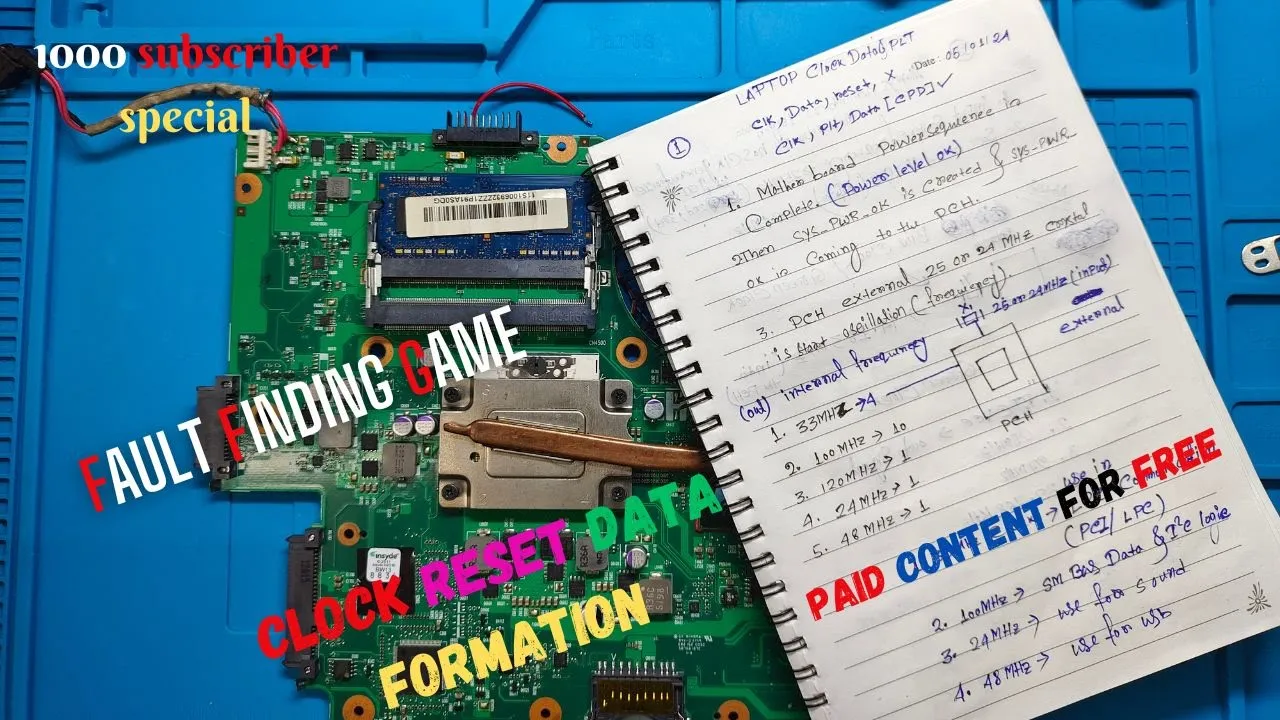 1000 subscriber
special
FAULT FINDING GAME
CLOCK RESET DATA
FORMATION
PAID CONTENT FOR FREE
11S1006932ZZZ1P91AS0DG
insyde
LAPTOP Clock Data & PLT
Date: 05/01/24
Clk, Data, reset, X
Clk, Plt, Data [CPD] ✓
①
1. Mother board Power Sequence is
Complete. (Power level ok)
2 Then SYS_PWR_OK is Created & SYS-PWR-
OK is Coming to the PCH.
3. PCH external 25 or 24 MHz crystal
is start oscillation (frequency).
X1
25 or 24 MHz (input)
external
(out) internal frequency
PCH
1. 33MHz → 4
2. 100MHz → 10
3. 120MHz → 1
4. 24MHz → 1
5. 48MHz → 1
use in
(PCI/LPC)
2. 100MHz → SM Bas Data & I²C logic
3. 24MHz → use for sound
4. 48MHz → use for USB